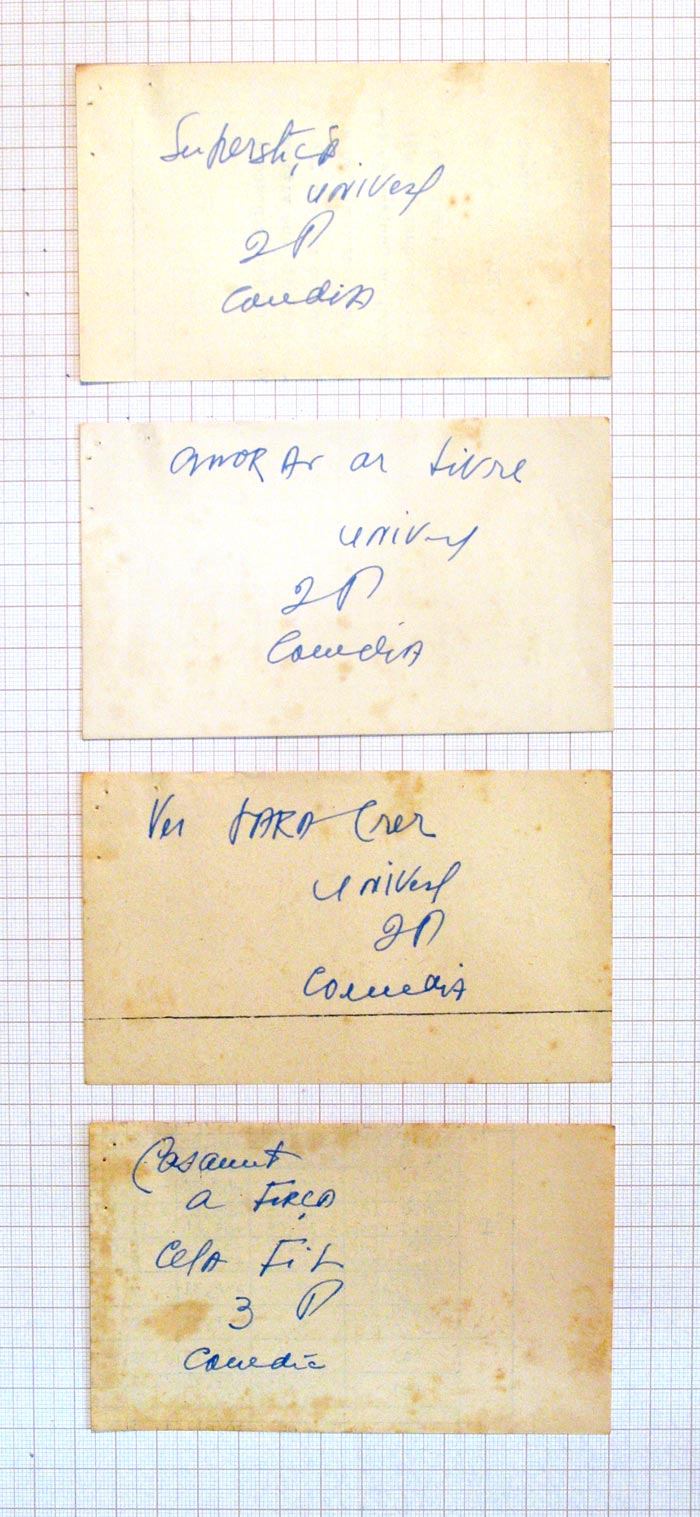 Superstiçã
univesl
2 P
Comedia
amor ar ar livre
univesl
2 P
Comedia
Ver para crer
univesl
2 P
Comedia
Casamnt
a força
Cela Fil
3 P
Comedia